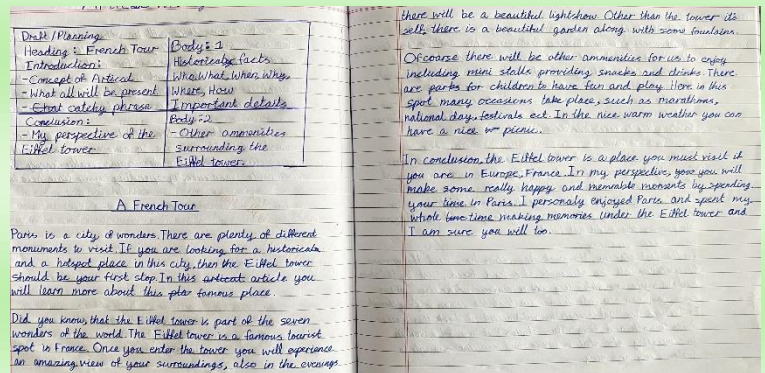 Draft/Planning
Heading: French Tour
Introduction:
-Concept of Artical
-What all will be present
-Chat catchy phrase
Body: 1
Historicaly facts
Who, What, When, Why,
Where, How
Important details
Conclusion:
-My perspective of the
Eiffel tower
Body:2
-Other ammenities
surrounding the
Eiffel tower.
A French Tour
Paris is a city of wonders. There are plenty of different
monuments to visit. If you are looking for a historicala
and a hotspot place in this city, then the Eiffel tower
should be your first stop. In this article you
will learn more about this famous place.
Did you know, that the Eiffel tower is part of the seven
wonders of the world. The Eiffel tower is a famous tourist
spot in France. Once you enter the tower you will experience
an amazing view of your surroundings, also in the evenings
there will be a beautiful lightshow. Other than the tower it's
self, there is a beautiful garden along with some fountains.
Ofcoarse there will be other ammenities for us to enjoy
including mini stalls providing snacks and drinks. There
are parks for children to have fun and play. Here in this
spot many occasions take place, such as marathons,
national day, festivals ect. In the nice warm weather you can
have a nice picnic.
In conclusion, the Eiffel tower is a place you must visit if
you are in Europe, France. In my perspective, you will
make some really happy and memrable moments by spending
your time in Paris. I personaly enjoyed Paris and spent my
whole time making memories under the Eiffel tower and
I am sure you will too.